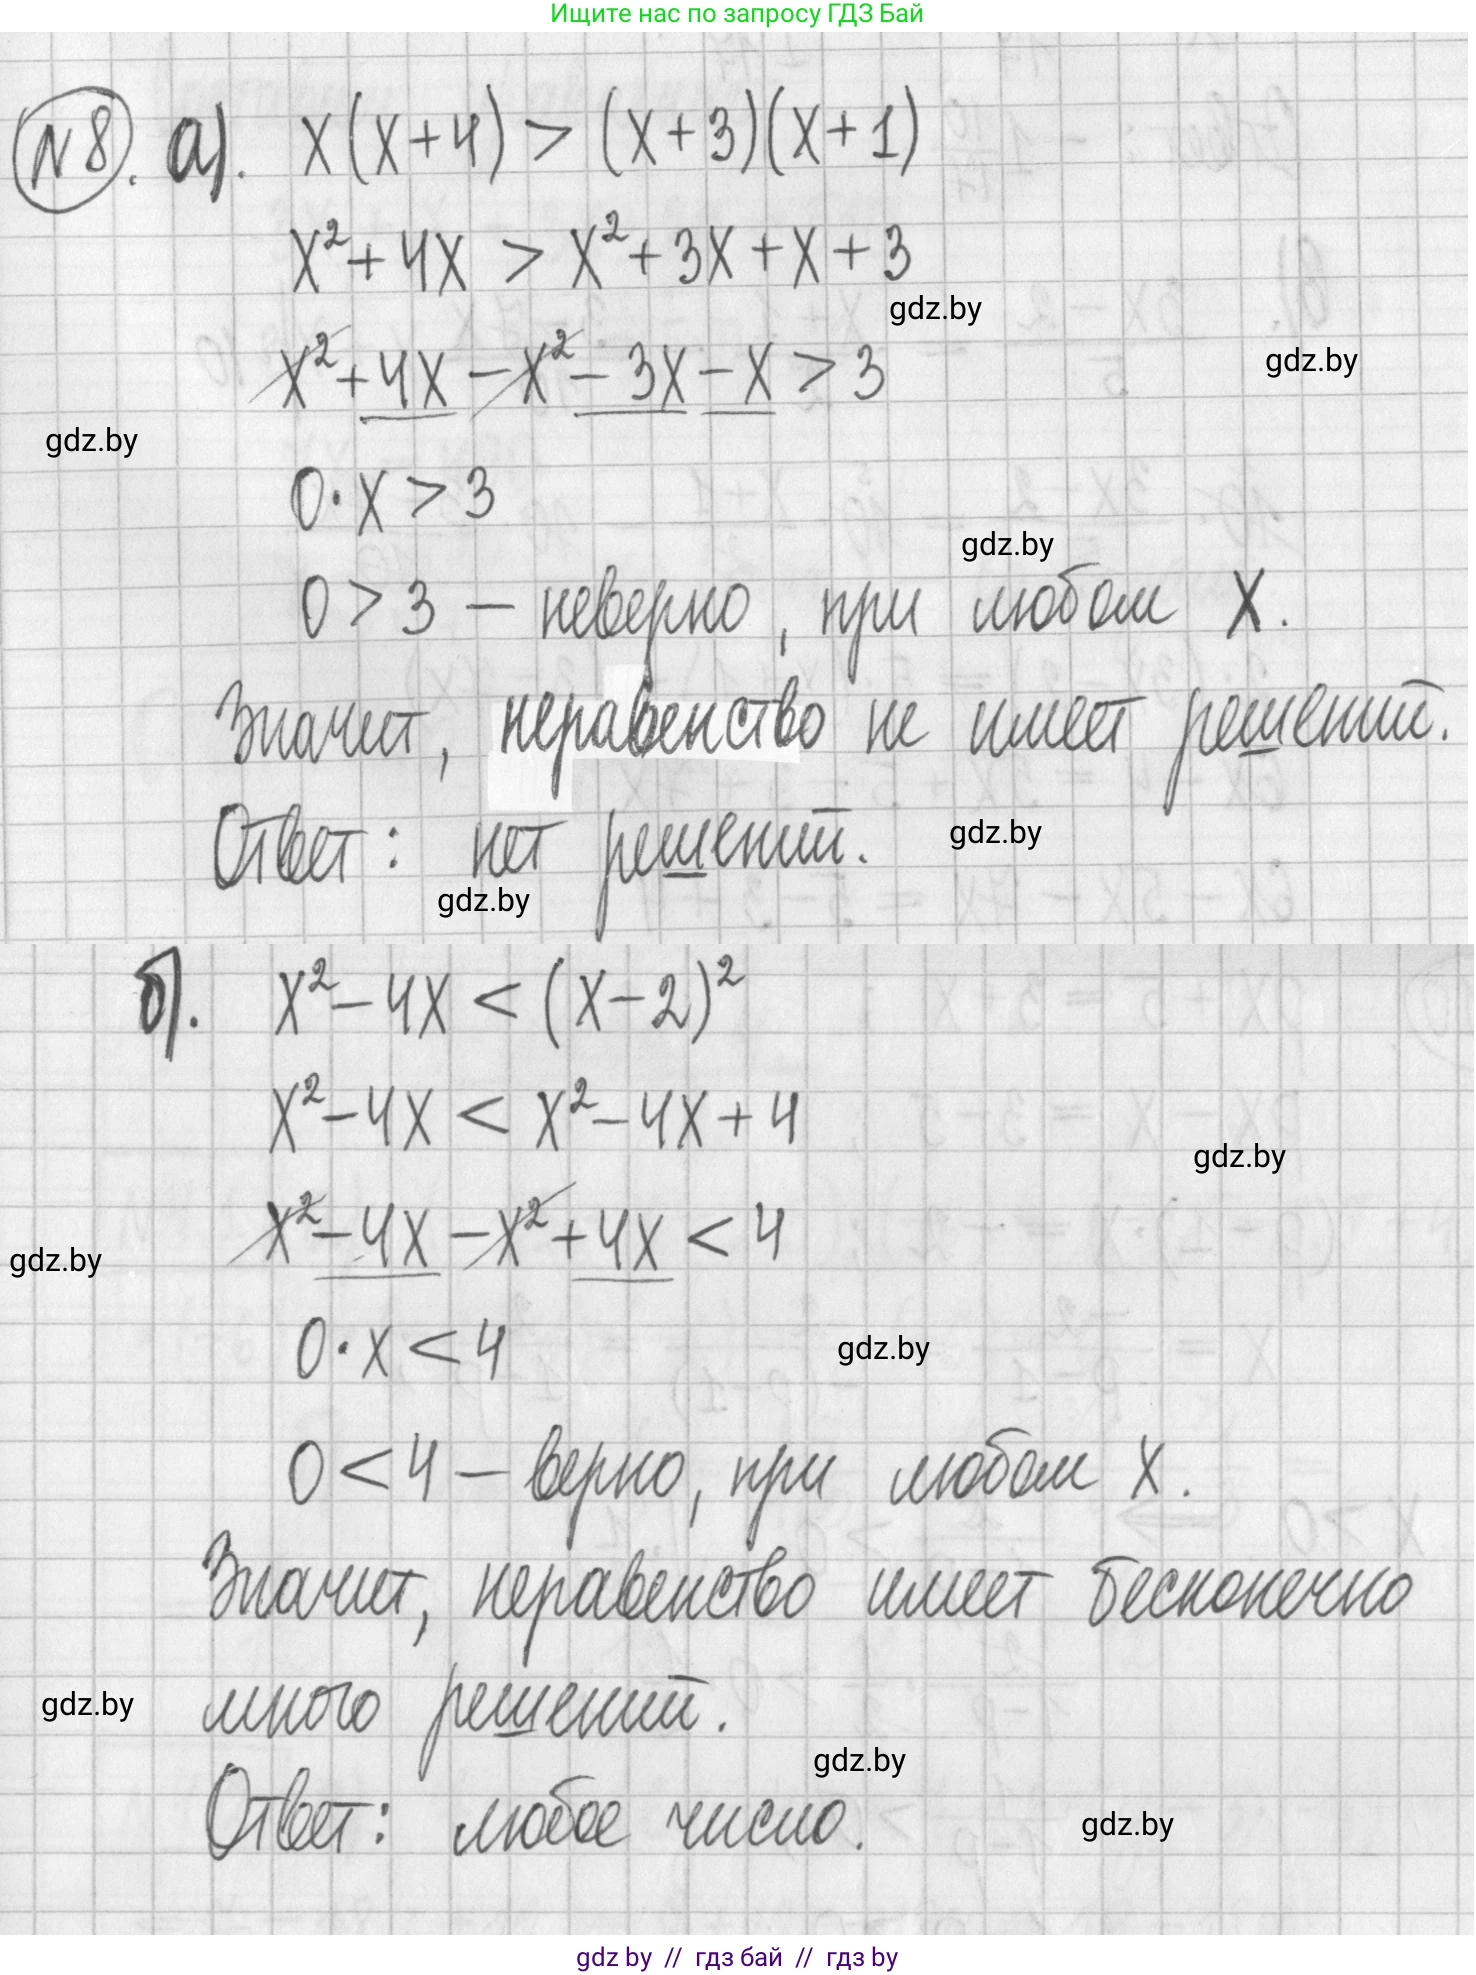 Ищите нас по запросу ГДЗ Бай
№8. а). x(x+4) > (x+3)(x+1)
x²+4x > x²+3x+x+3
gdz.by
x²+4x-x²-3x-x > 3
gdz.by
gdz.by
0·x > 3
gdz.by
0 > 3 — неверно, при любом x.
Значит, неравенство не имеет решений.
Ответ: нет решений.
gdz.by
gdz.by
б). x²-4x < (x-2)²
x²-4x < x²-4x+4
gdz.by
x²-4x-x²+4x < 4
gdz.by
0·x < 4
gdz.by
0 < 4 — верно, при любом x.
Значит, неравенство имеет бесконечно
много решений.
gdz.by
gdz.by
Ответ: любое число.
gdz.by
gdz by // гдз бай // гдз by